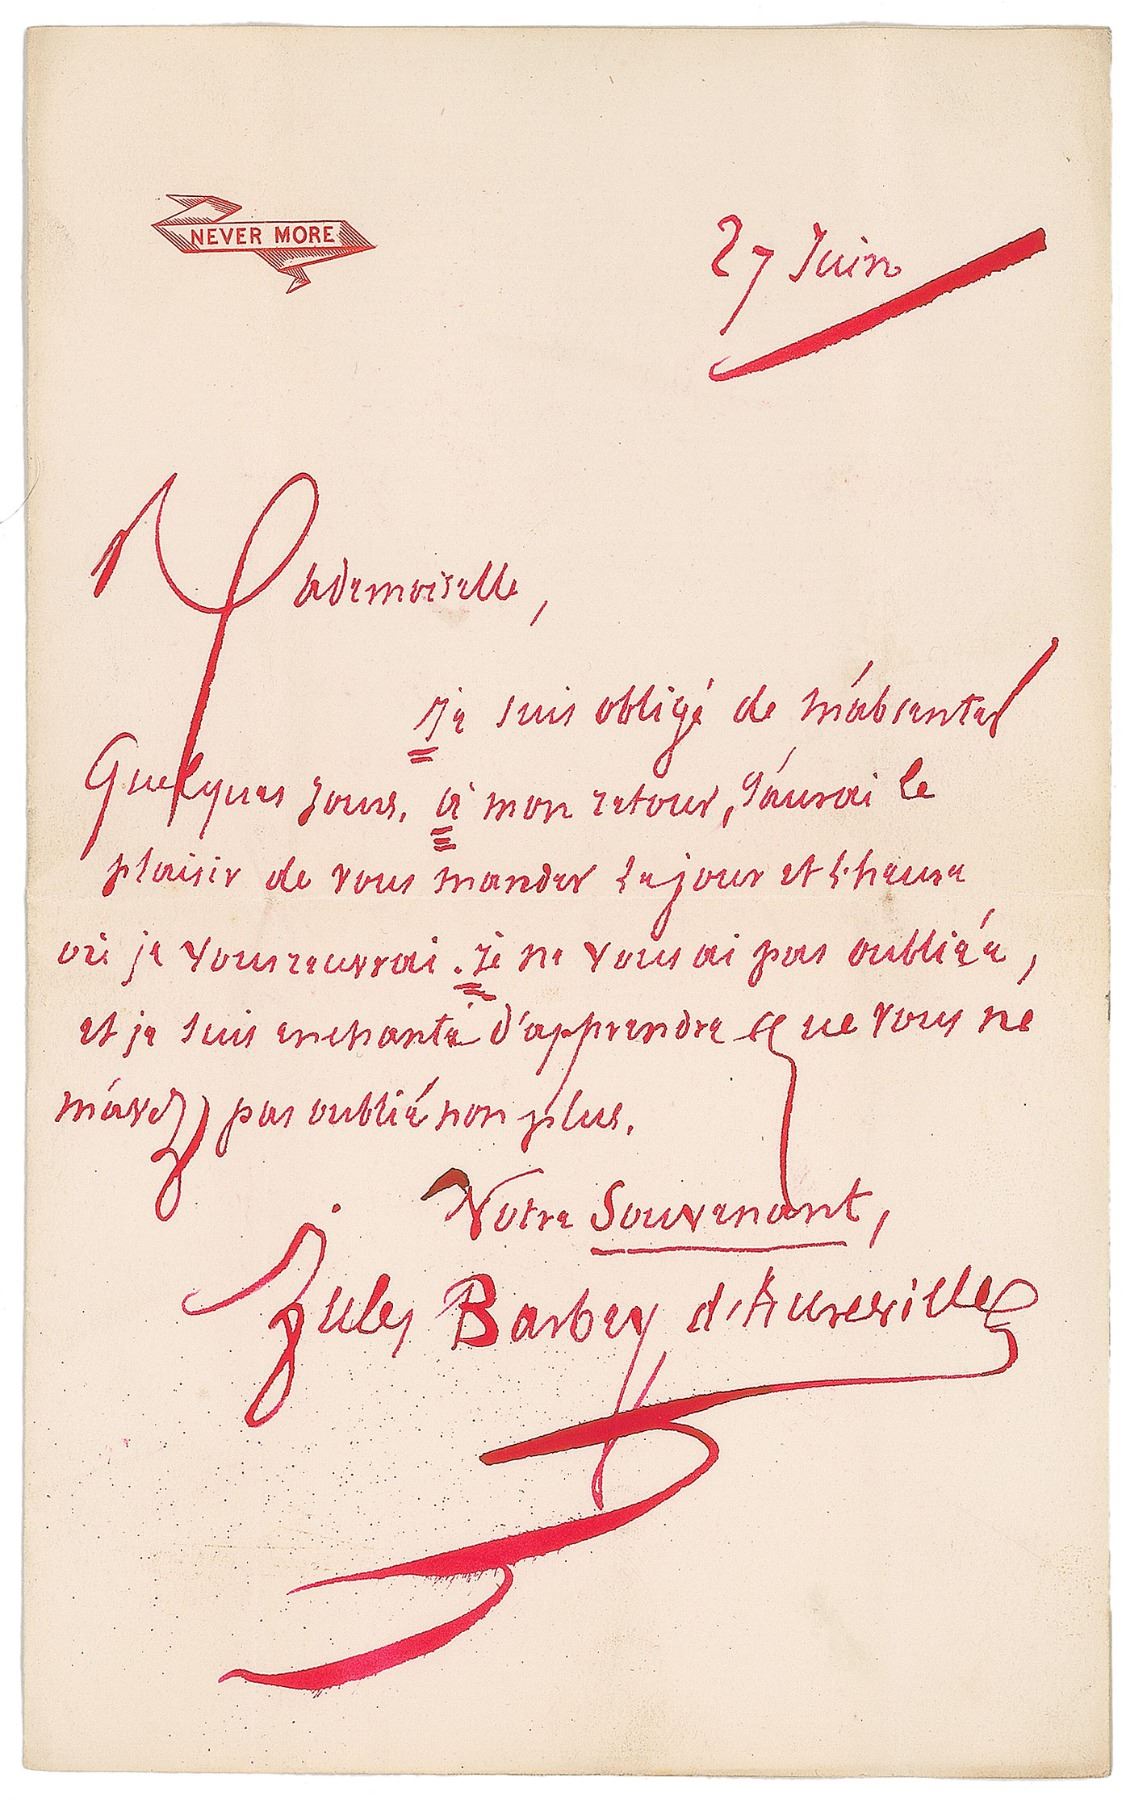 NEVER MORE
27 Juin
Mademoiselle,
Je suis obligé de m'absenter
Quelques jours. à mon retour, j'aurai le
plaisir de vous mander le jour et l'heure
où je vous recevrai. Je ne vous ai pas oubliée,
et je suis enchanté d'apprendre que vous ne
m'avez pas oublié non plus.
Votre Souvenant,
Jules Barbey d'Aurevilly